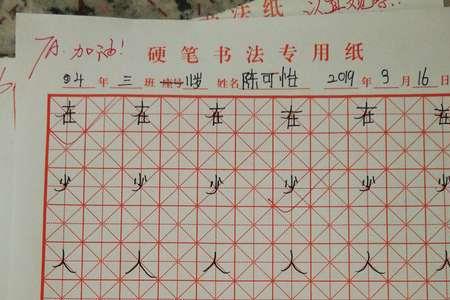 法纸
A. 加油!
硬笔书法专用纸
4 年 三 班 座号 姓名 陈可怡 2019 年 3 月 16 日
在 在 在 在 在 在
少 少 少 少 少 少
人 人 人 人 人 人